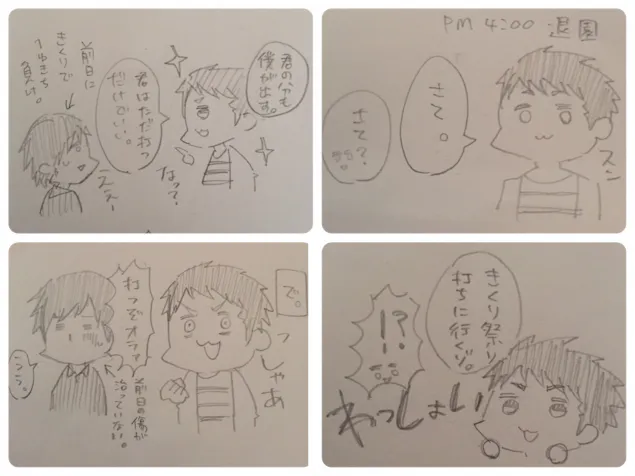 PM 4:00 退園
さて。
さて?
スン
きくり祭り
打ちに行くゾ。
!?
わっしょい
君の分も
僕が出す。
君はただ打つ
だけでいい。
なっ?
前日に
きくりで
1ゆきち
負け。
ええー
で。
っしゃあ
打つぞオラァ
前日の傷が
治っていない。
ううう。